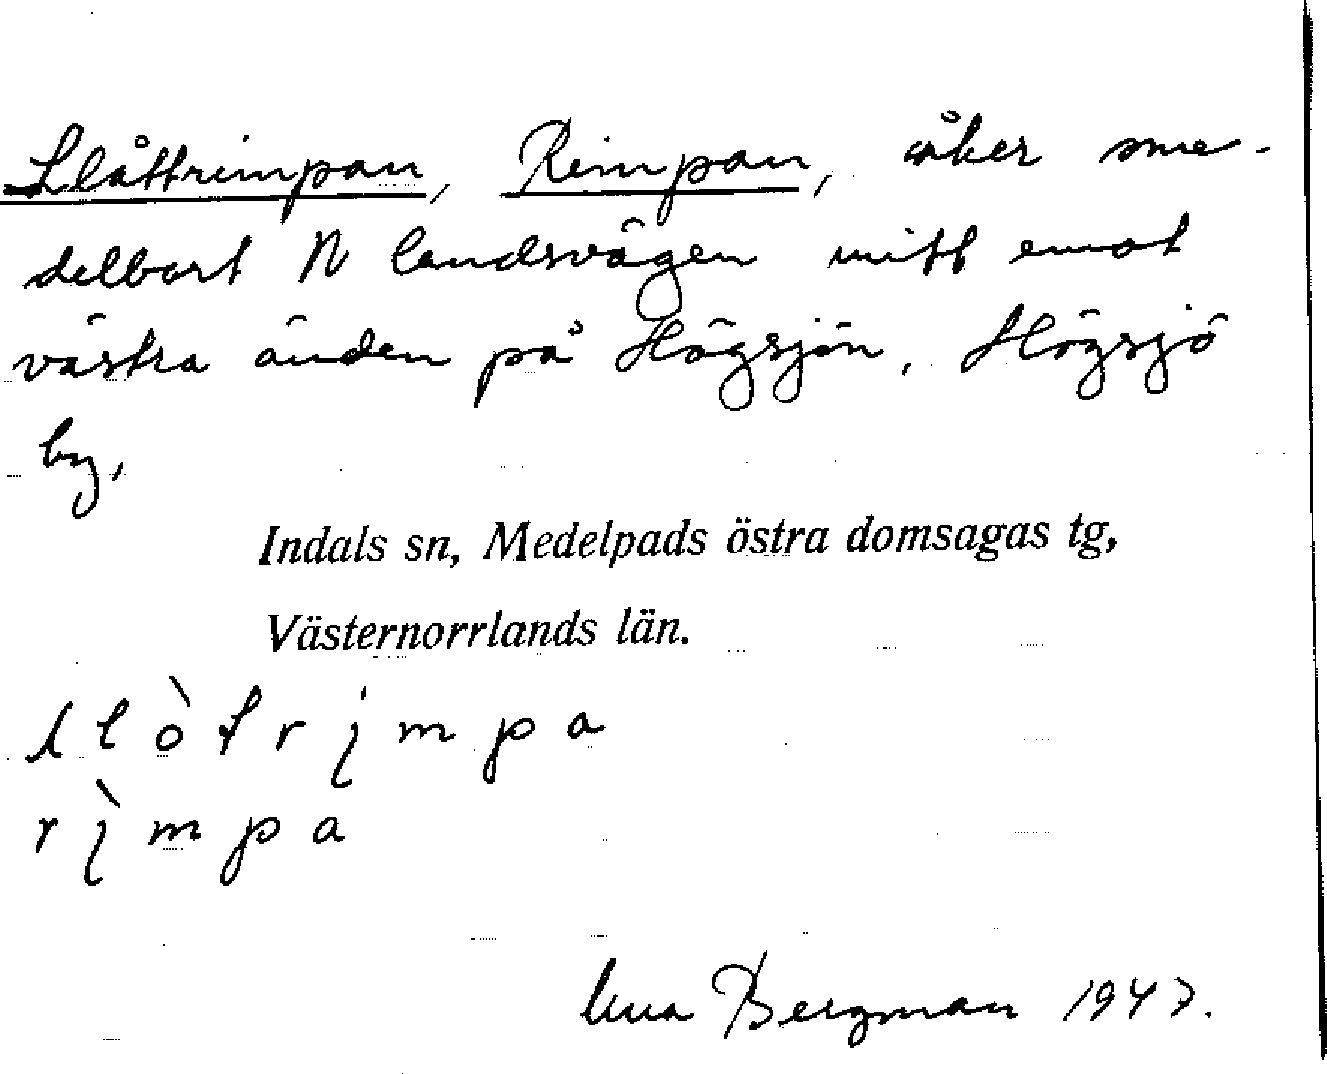 Slåttrimpan, Rimpan, åker ome-
delbart N landsvägen mitt emot
västra änden på Högsjön, Högsjö
by,
Indals sn, Medelpads östra domsagas tg,
Västernorrlands län.
slòtrįmpa
rįmpa
Bergman 1947.